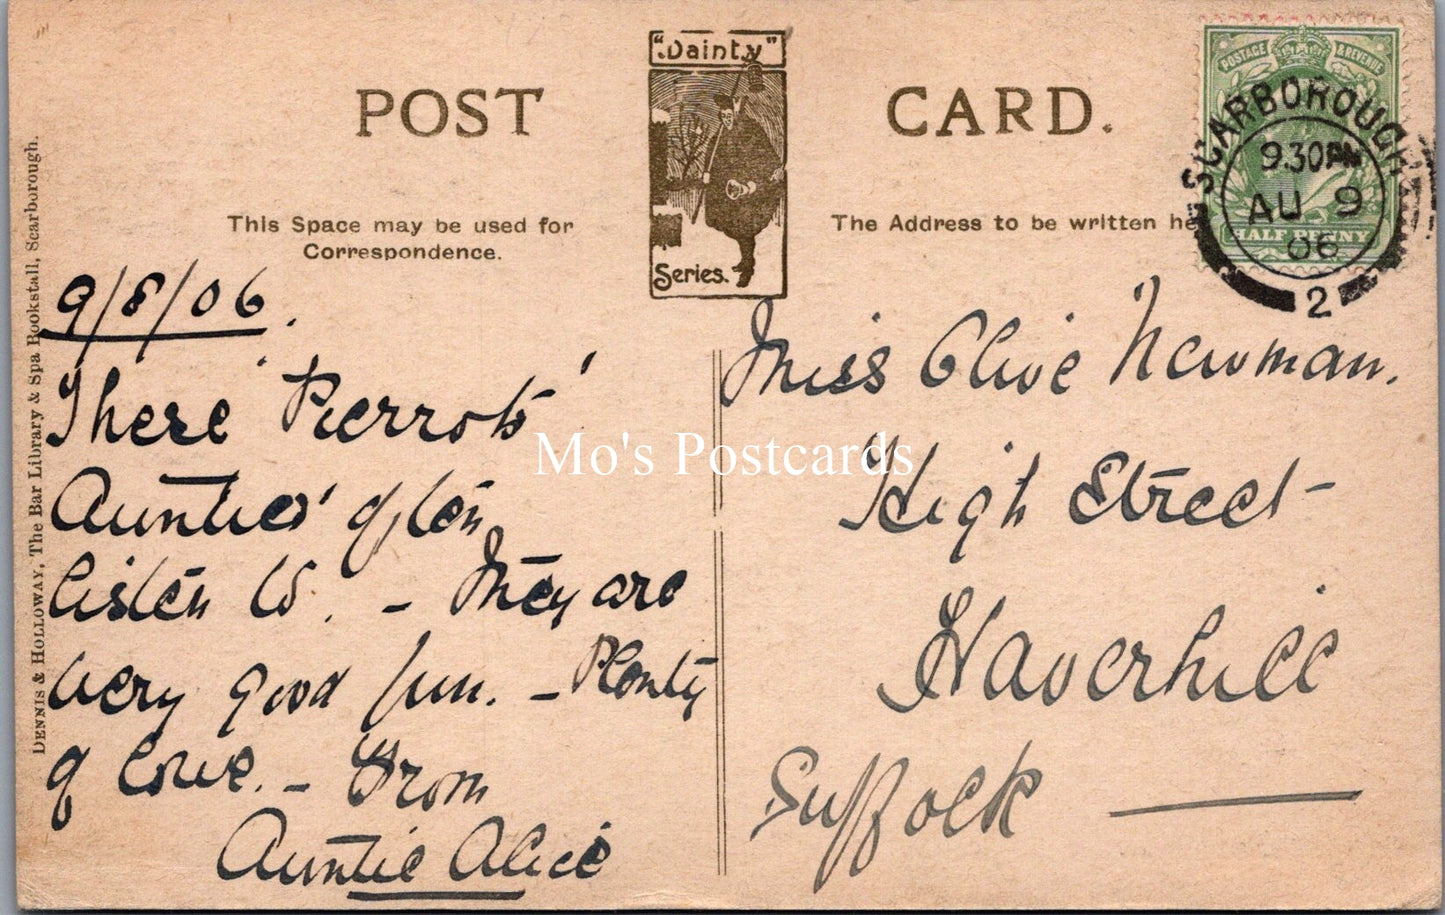 "Dainty"
Series.
POST CARD.
This Space may be used for
Correspondence.
The Address to be written he
SCARBOROUGH
9.30PM
AU 9
06
2
POSTAGE & REVENUE
HALF PENNY
DENNIS & HOLLOWAY, The Bar Library & Spa Bookstall, Scarborough.
9/8/06.
These 'Pierrots'
Aunties' often
listen to. - They are
very good fun. - Plenty
of love. - From
Auntie Alice
Miss Olive Newman.
High Street
Haverhill
Suffolk
Mo's Postcards